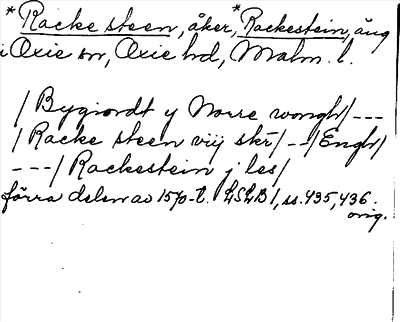 *Racke steen, åker, *Rackestein, äng
i Oxie sn, Oxie hd, Malm. l.
/Bygiordt y Norre wongh/---
/Racke steen viij skr/--/Engh/
---/Rackestein j les/
förra delen av 1570-t. LSLB 1, ss. 435, 436.
orig.